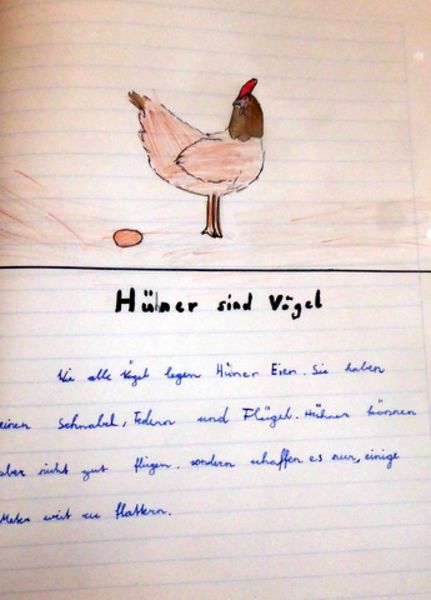 Hüner sind Vögel
Wie alle Vögel legen Hüner Eier. Sie haben
einen Schnabel, Federn und Flügel. Hühner können
aber nicht gut flügen. sondern schaffen es nur, einige
Meter weit zu flattern.